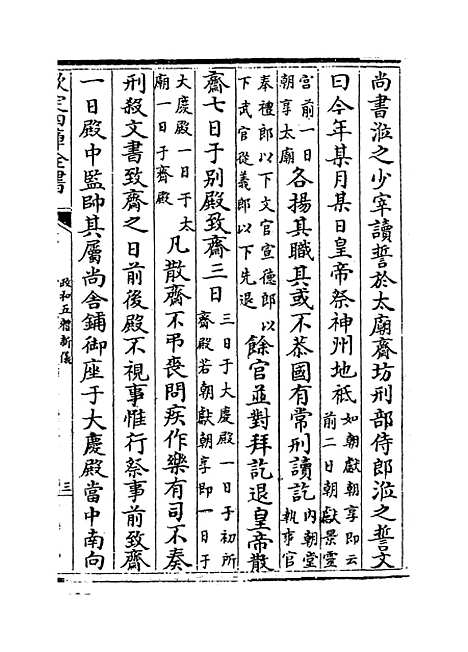 尚書涖之少宰讀誓於太廟齋坊刑部侍郎涖之誓文
曰今年某月某日皇帝祭神州地祇
如朝獻朝享即云
前二日朝獻景靈
宫前一日
朝享太廟
各揚其職其或不恭國有常刑讀訖
内朝堂
執事官
奉禮郎以下文官宣德郎以
下武官從義郎以下先退
餘官並對拜訖退皇帝散
齋七日于别殿致齋三日
三日于大慶殿一日于初所
齋殿若朝獻朝享即一日于
大慶殿一日于太
廟一日于齋殿
凡散齋不弔喪問疾作樂有司不奏
刑殺文書致齋之日前後殿不視事惟行祭事前致齋
一日殿中監帥其屬尚舍鋪御座于大慶殿當中南向
欽定四庫全書
政和五禮新儀
三